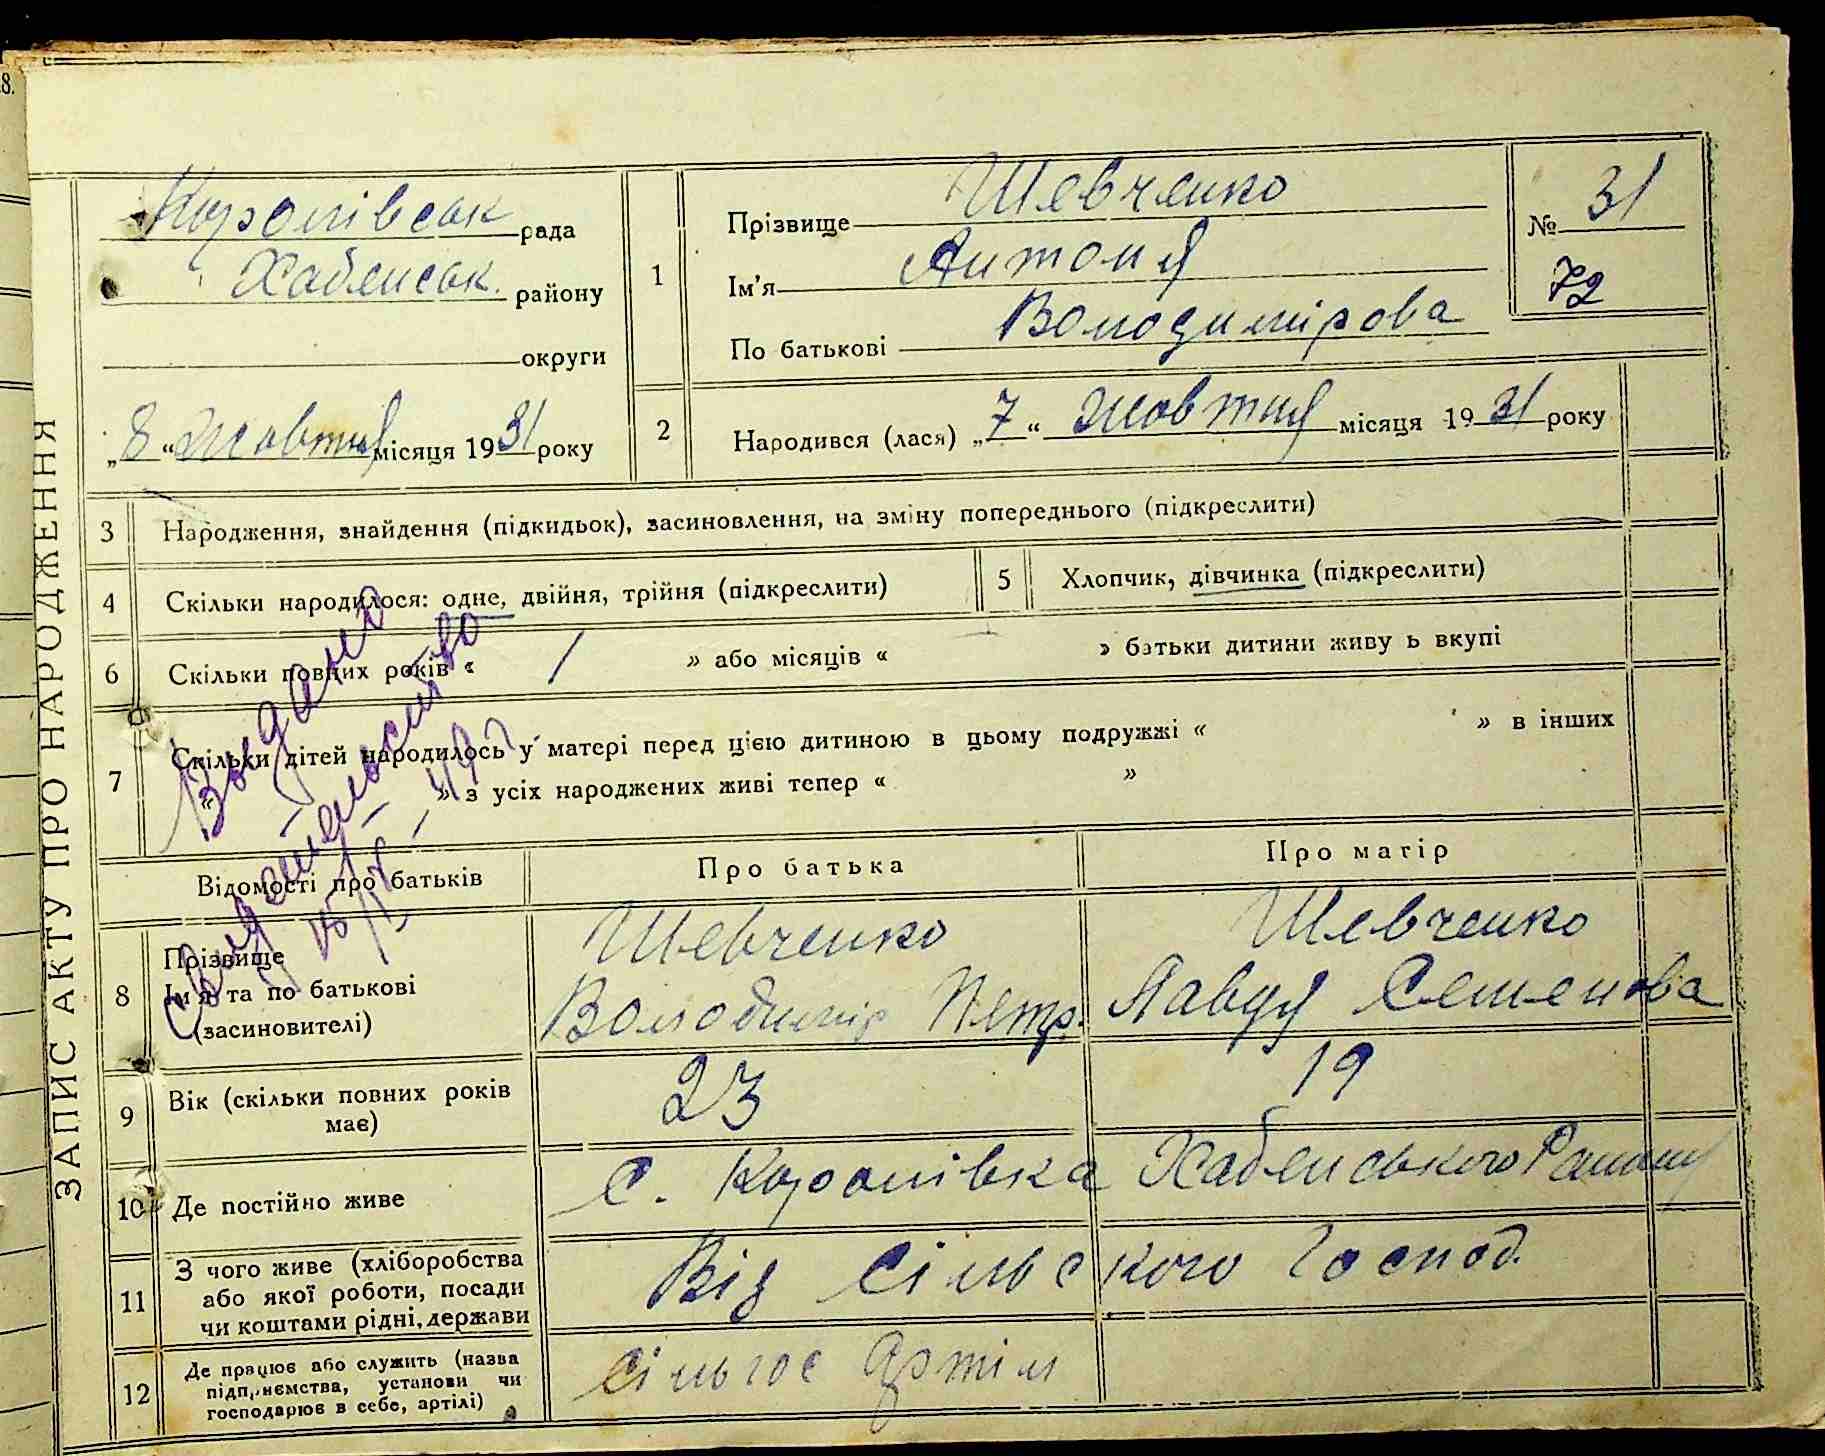 8.
ЗАПИС АКТУ ПРО НАРОДЖЕННЯ
Королівськ рада
Хабенськ. району
округи
„8“ Жовтня місяця 1931 року
1
Прізвище Шевченко
Ім'я Антоня
По батькові Володимірова
№ 31
72
2
Народився (лася) „7“ жовтня місяця 1931 року
3 Народження, знайдення (підкидьок), засиновлення, на зміну попереднього (підкреслити)
4 Скільки народилося: одне, двійня, трійня (підкреслити)
5 Хлопчик, дівчинка (підкреслити)
6 Скільки повних років « 1 » або місяців « » батьки дитини живу ь вкупі
7 Скільки дітей народилось у матері перед цією дитиною в цьому подружжі « » в інших
« » з усіх народжених живі тепер « »
Выдано
свидетельство
Відомості про батьків
Про батька
Про матір
8
Прізвище
Ім'я та по батькові
(засиновителі)
Шевченко
Володимір Петр.
Шевченко
Явдя Семенова
9
Вік (скільки повних років
має)
23
19
10 Де постійно живе
С. Королівка Хабенського Району
11
З чого живе (хліборобства
або якої роботи, посади
чи коштами рідні, держави
Від Сільського Господ.
12
Де працює або служить (назва
підприємства, установи чи
господарює в себе, артілі)
Сільгос Артіл